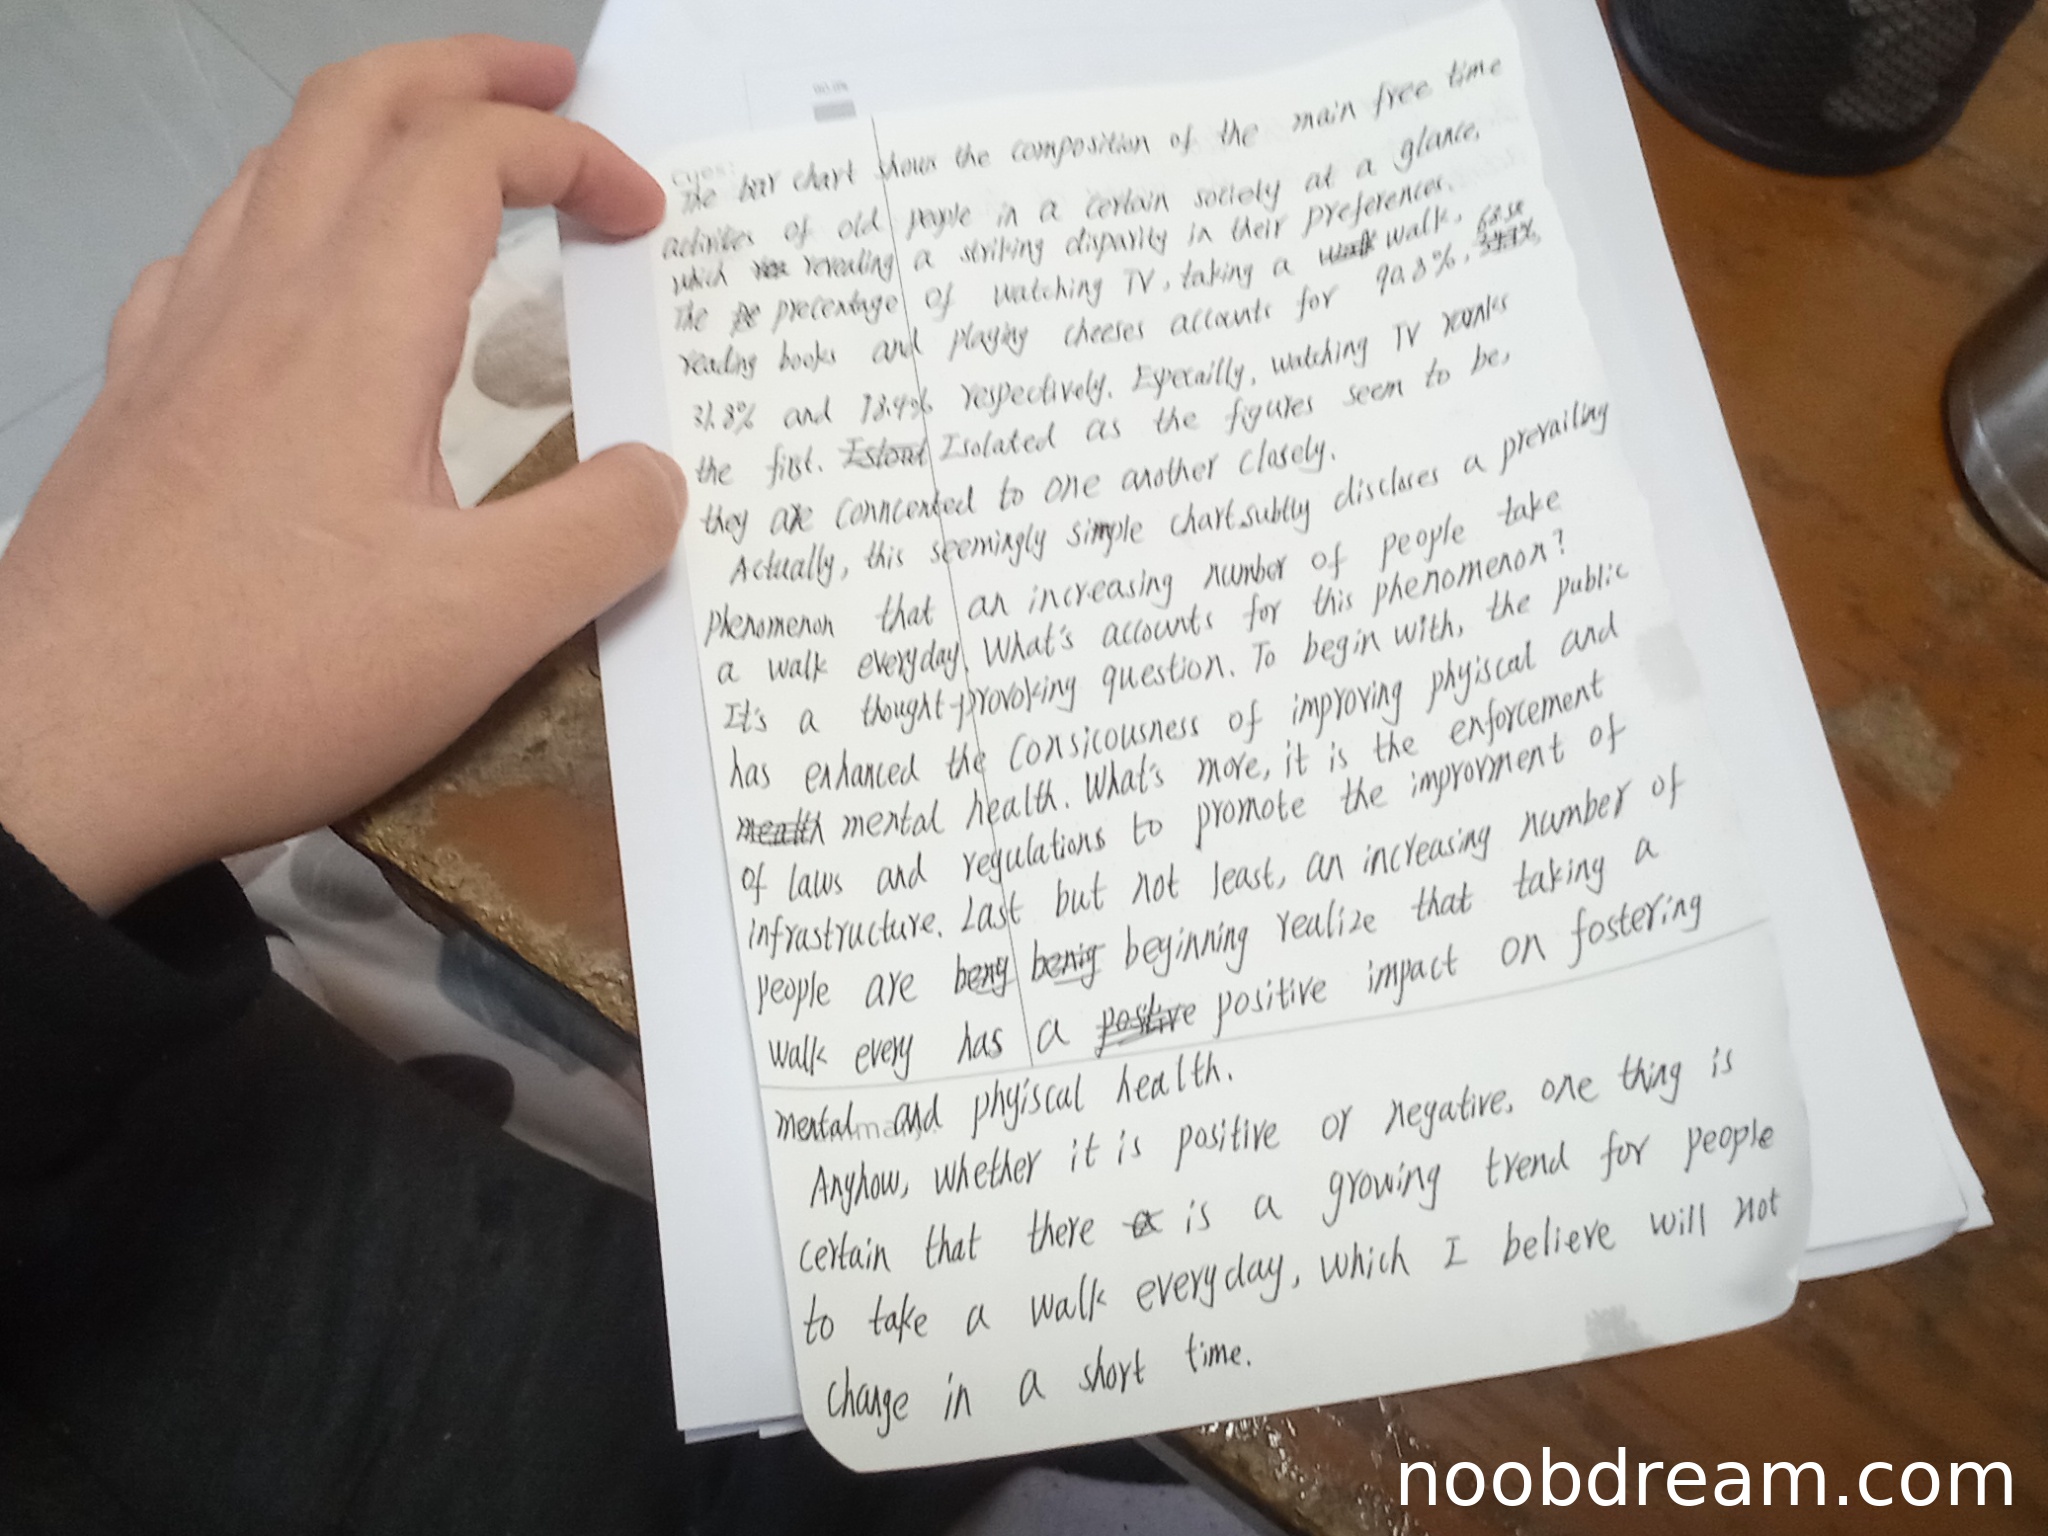 The bar chart shows the composition of the main free time
activities of old people in a certain society at a glance,
which revealing a striking disparity in their preferences.
The precentage of watching TV, taking a walk,
reading books and playing cheeses accounts for 90.3%, 68.5%
31.8% and 18.4% respectively. Epecailly, watching TV ranks
the first. Isolated as the figures seem to be,
they are conncented to one another closely.
Actually, this seemingly simple chart subtly discloses a prevailing
phenomenon that an increasing number of people take
a walk everyday. What's accounts for this phenomenon?
It's a thought-provoking question. To begin with, the public
has enhanced the consicousness of improving phyiscal and
mental health. What's more, it is the enforcement
of laws and regulations to promote the improvment of
infrastructure. Last but not least, an increasing number of
people are beginning realize that taking a
walk every has a positive impact on fostering
mental and phyiscal health.
Anyhow, whether it is positive or negative, one thing is
certain that there is a growing trend for people
to take a walk everyday, which I believe will not
change in a short time.
noobdream.com